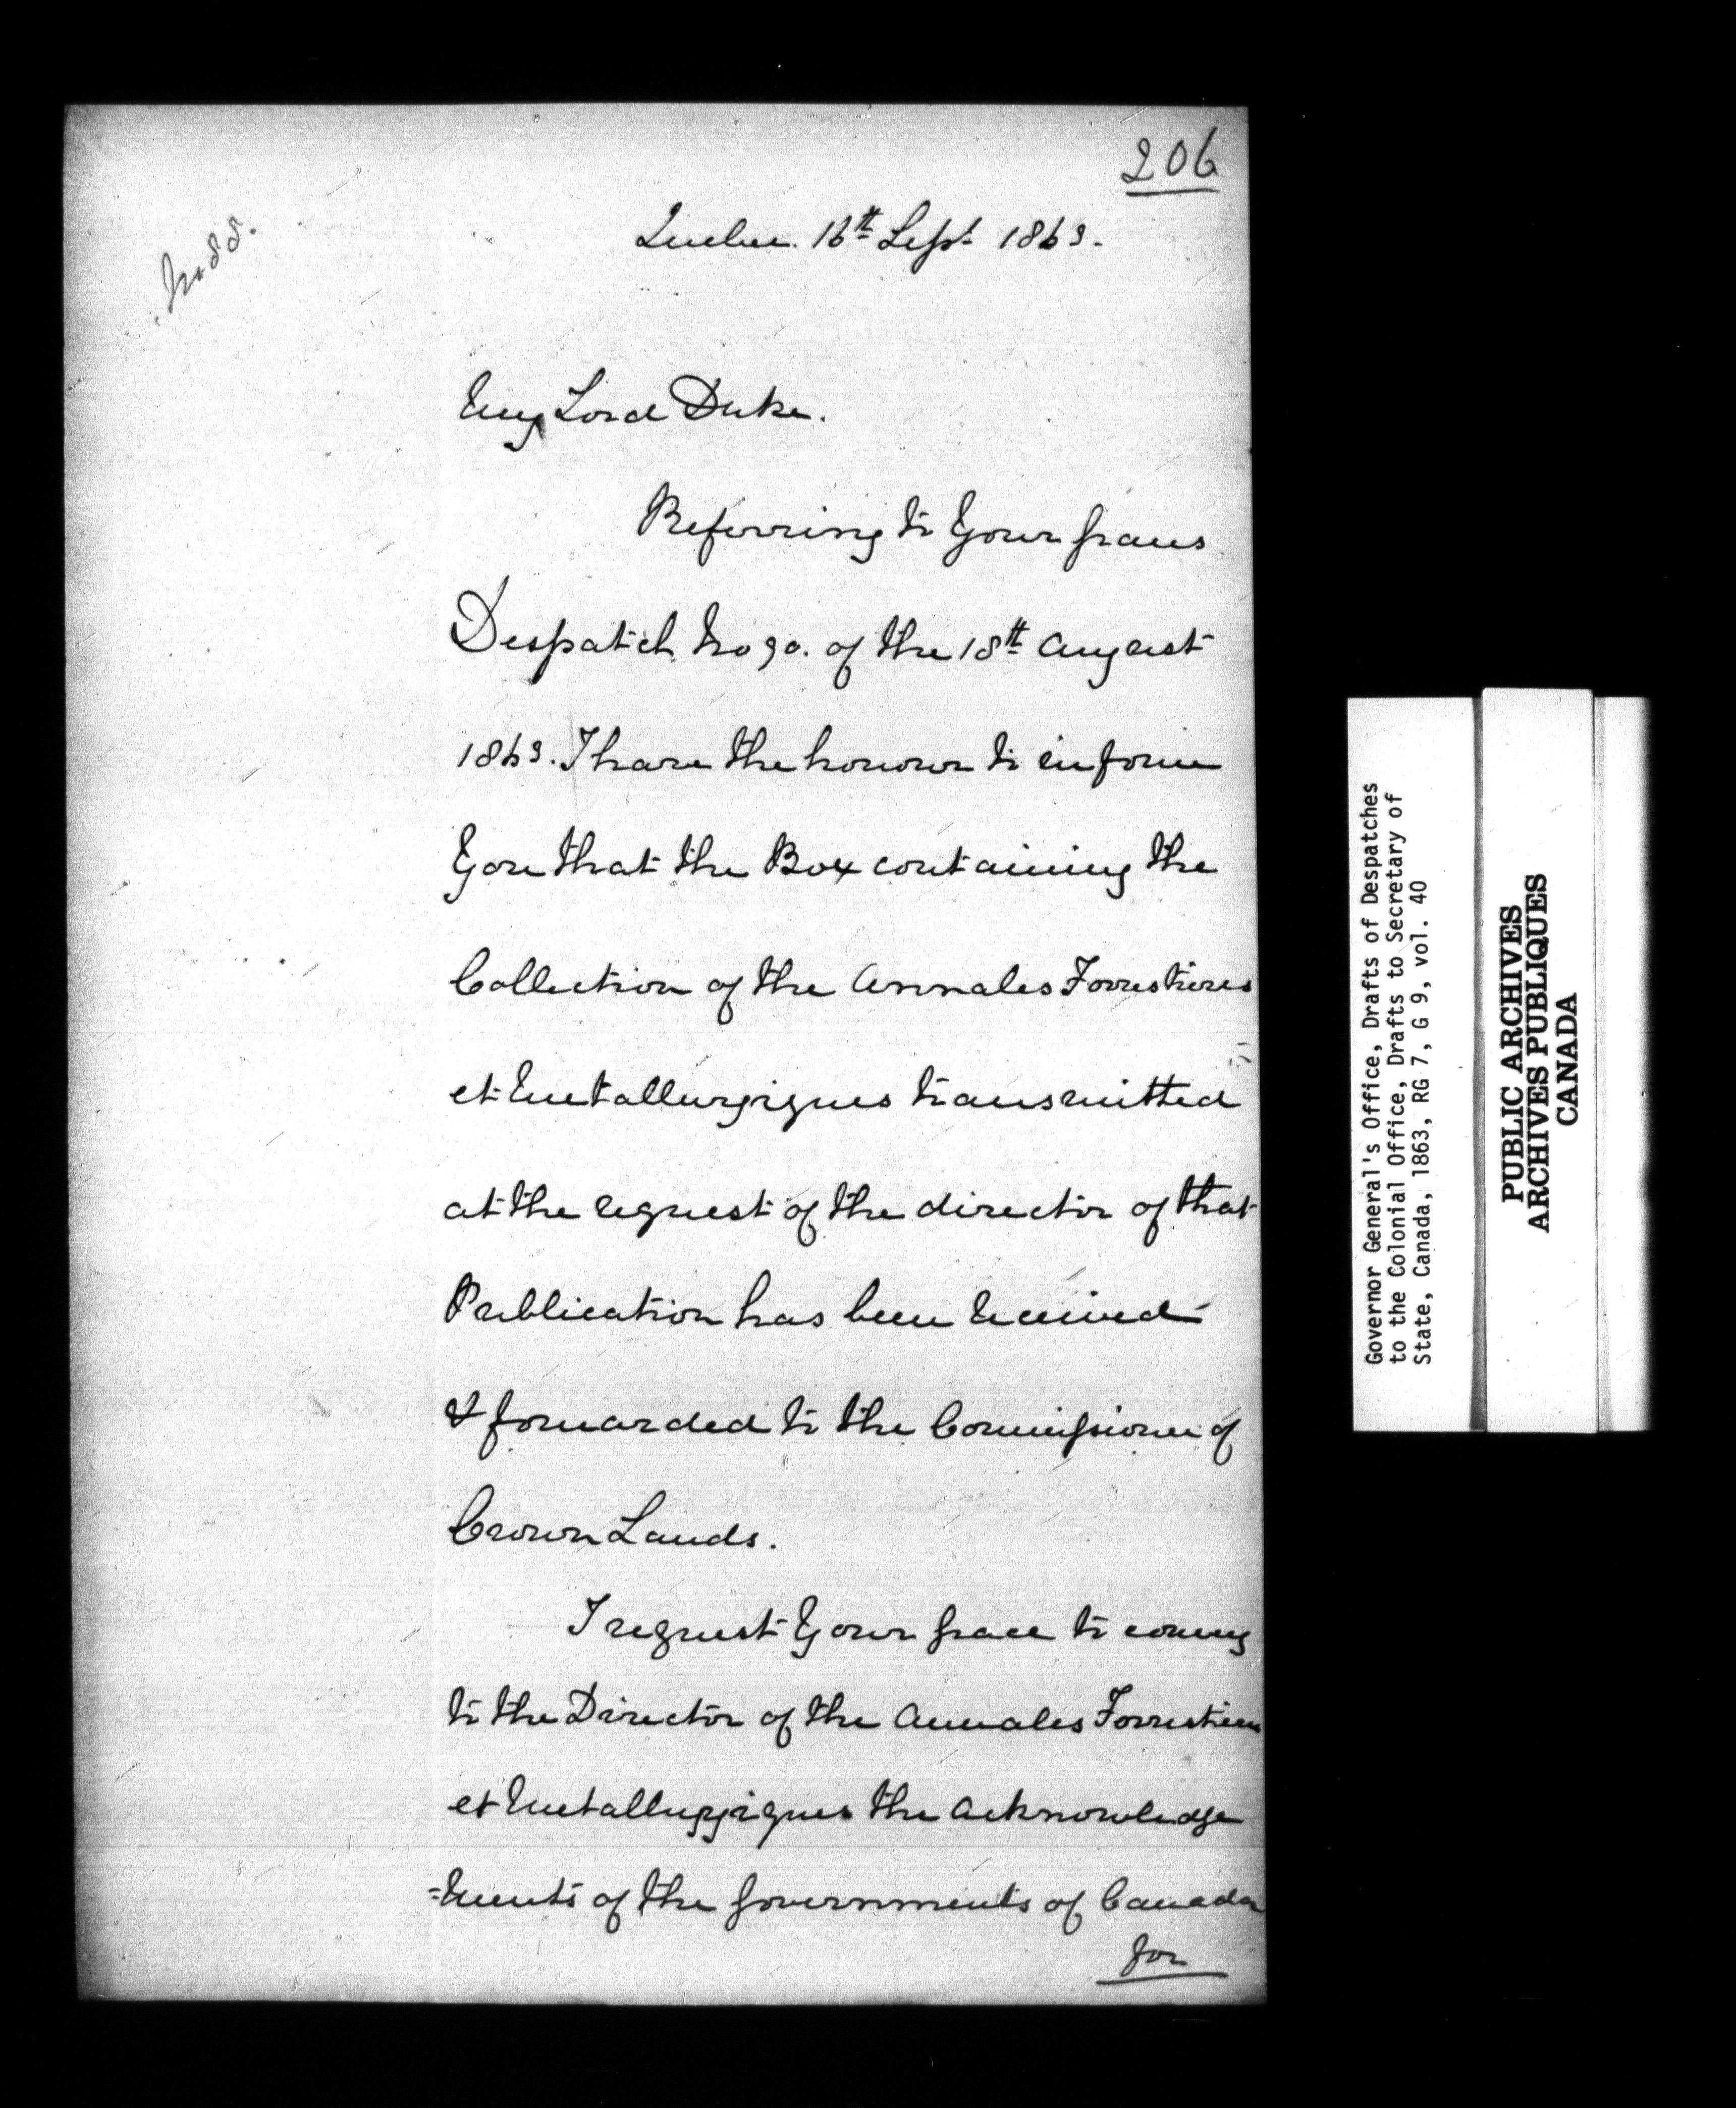 206
No 88.
Quebec. 16th Sept 1863.
My Lord Duke.
Referring to Your Graces
Despatch No 90. of the 18th August
1863. I have the honour to inform
You that the Box containing the
Collection of the Annales Forrestieres
et Metallurgiques transmitted
at the request of the director of that
Publication has been received
& forwarded to the Commissioner of
Crown Lands.
I request Your Grace to convey
to the Director of the Annales Forrestieres
et Metallurgiques the Acknowledge
=ments of the Governments of Canada
for
Governor General's Office, Drafts of Despatches
to the Colonial Office, Drafts to Secretary of
State, Canada, 1863, RG 7, G 9, vol. 40
PUBLIC ARCHIVES
ARCHIVES PUBLIQUES
CANADA